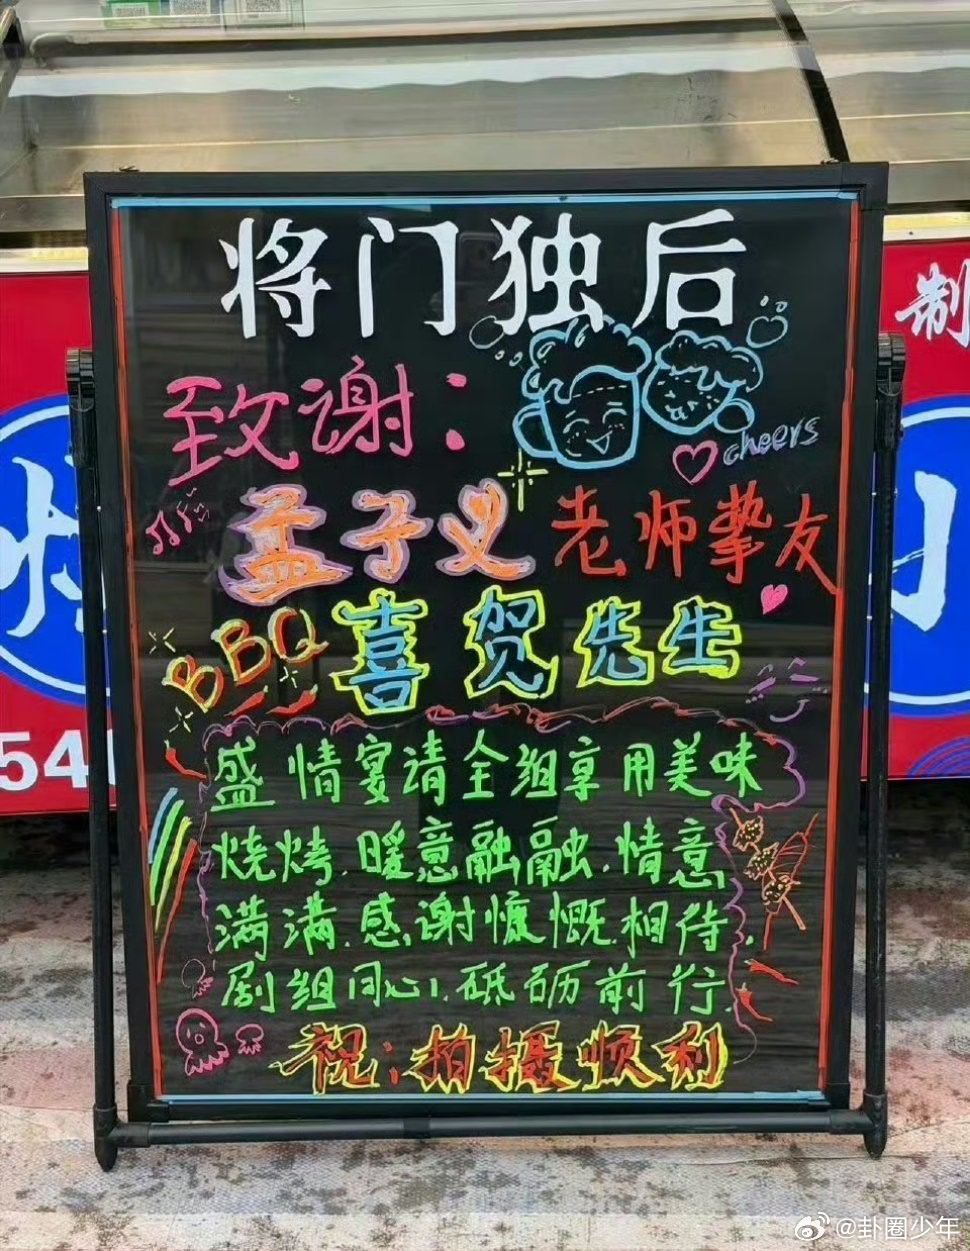 将门独后
致谢:
cheers
孟子义老师挚友
BBQ 喜贺先生
盛情宴请全组享用美味
烧烤.暖意融融.情意
满满.感谢慷慨相待.
剧组同心.砥砺前行.
祝:拍摄顺利
制
541
@卦圈少年